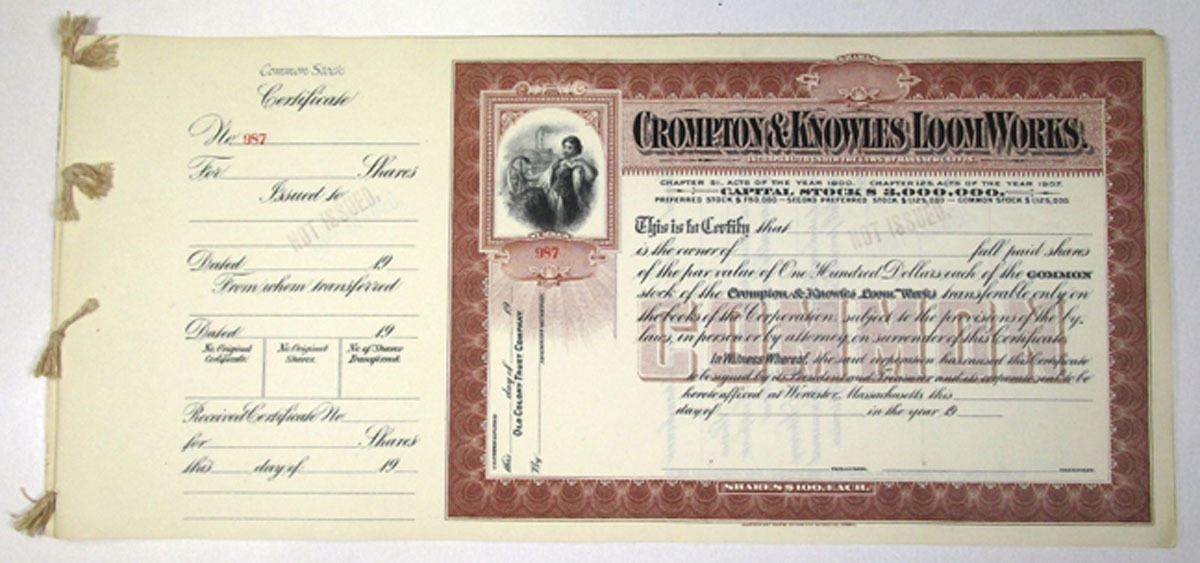 Common Stock
Certificate
No. 987
For Shares
Issued to
NOT ISSUED.
Dated 19
From whom transferred
Dated 19
No. Original Certificate. No. Original Shares. No. of Shares Transferred.
Received Certificate No.
for Shares
this day of 19
SHARES
CROMPTON & KNOWLES LOOM WORKS.
INCORPORATED UNDER THE LAWS OF MASSACHUSETTS.
CHAPTER 51, ACTS OF THE YEAR 1900. CHAPTER 125, ACTS OF THE YEAR 1907.
CAPITAL STOCK $3,000,000.
PREFERRED STOCK $750,000 — SECOND PREFERRED STOCK $1,125,000 — COMMON STOCK $1,125,000.
987
This is to Certify that
NOT ISSUED.
is the owner of full paid shares
of the par value of One Hundred Dollars each of the COMMON
stock of the Crompton & Knowles Loom Works transferable only on
the books of the Corporation, subject to the provisions of the by-
laws, in person or by attorney, on surrender of this Certificate.
COMMON
In Witness Whereof, the said corporation has caused this Certificate
to be signed by its President and Treasurer and its corporate seal to be
hereto affixed at Worcester, Massachusetts this
day of in the year 19
COUNTERSIGNED
this day of 19
OLD COLONY TRUST COMPANY,
By
TREASURER. PRESIDENT.
SHARES $100. EACH.